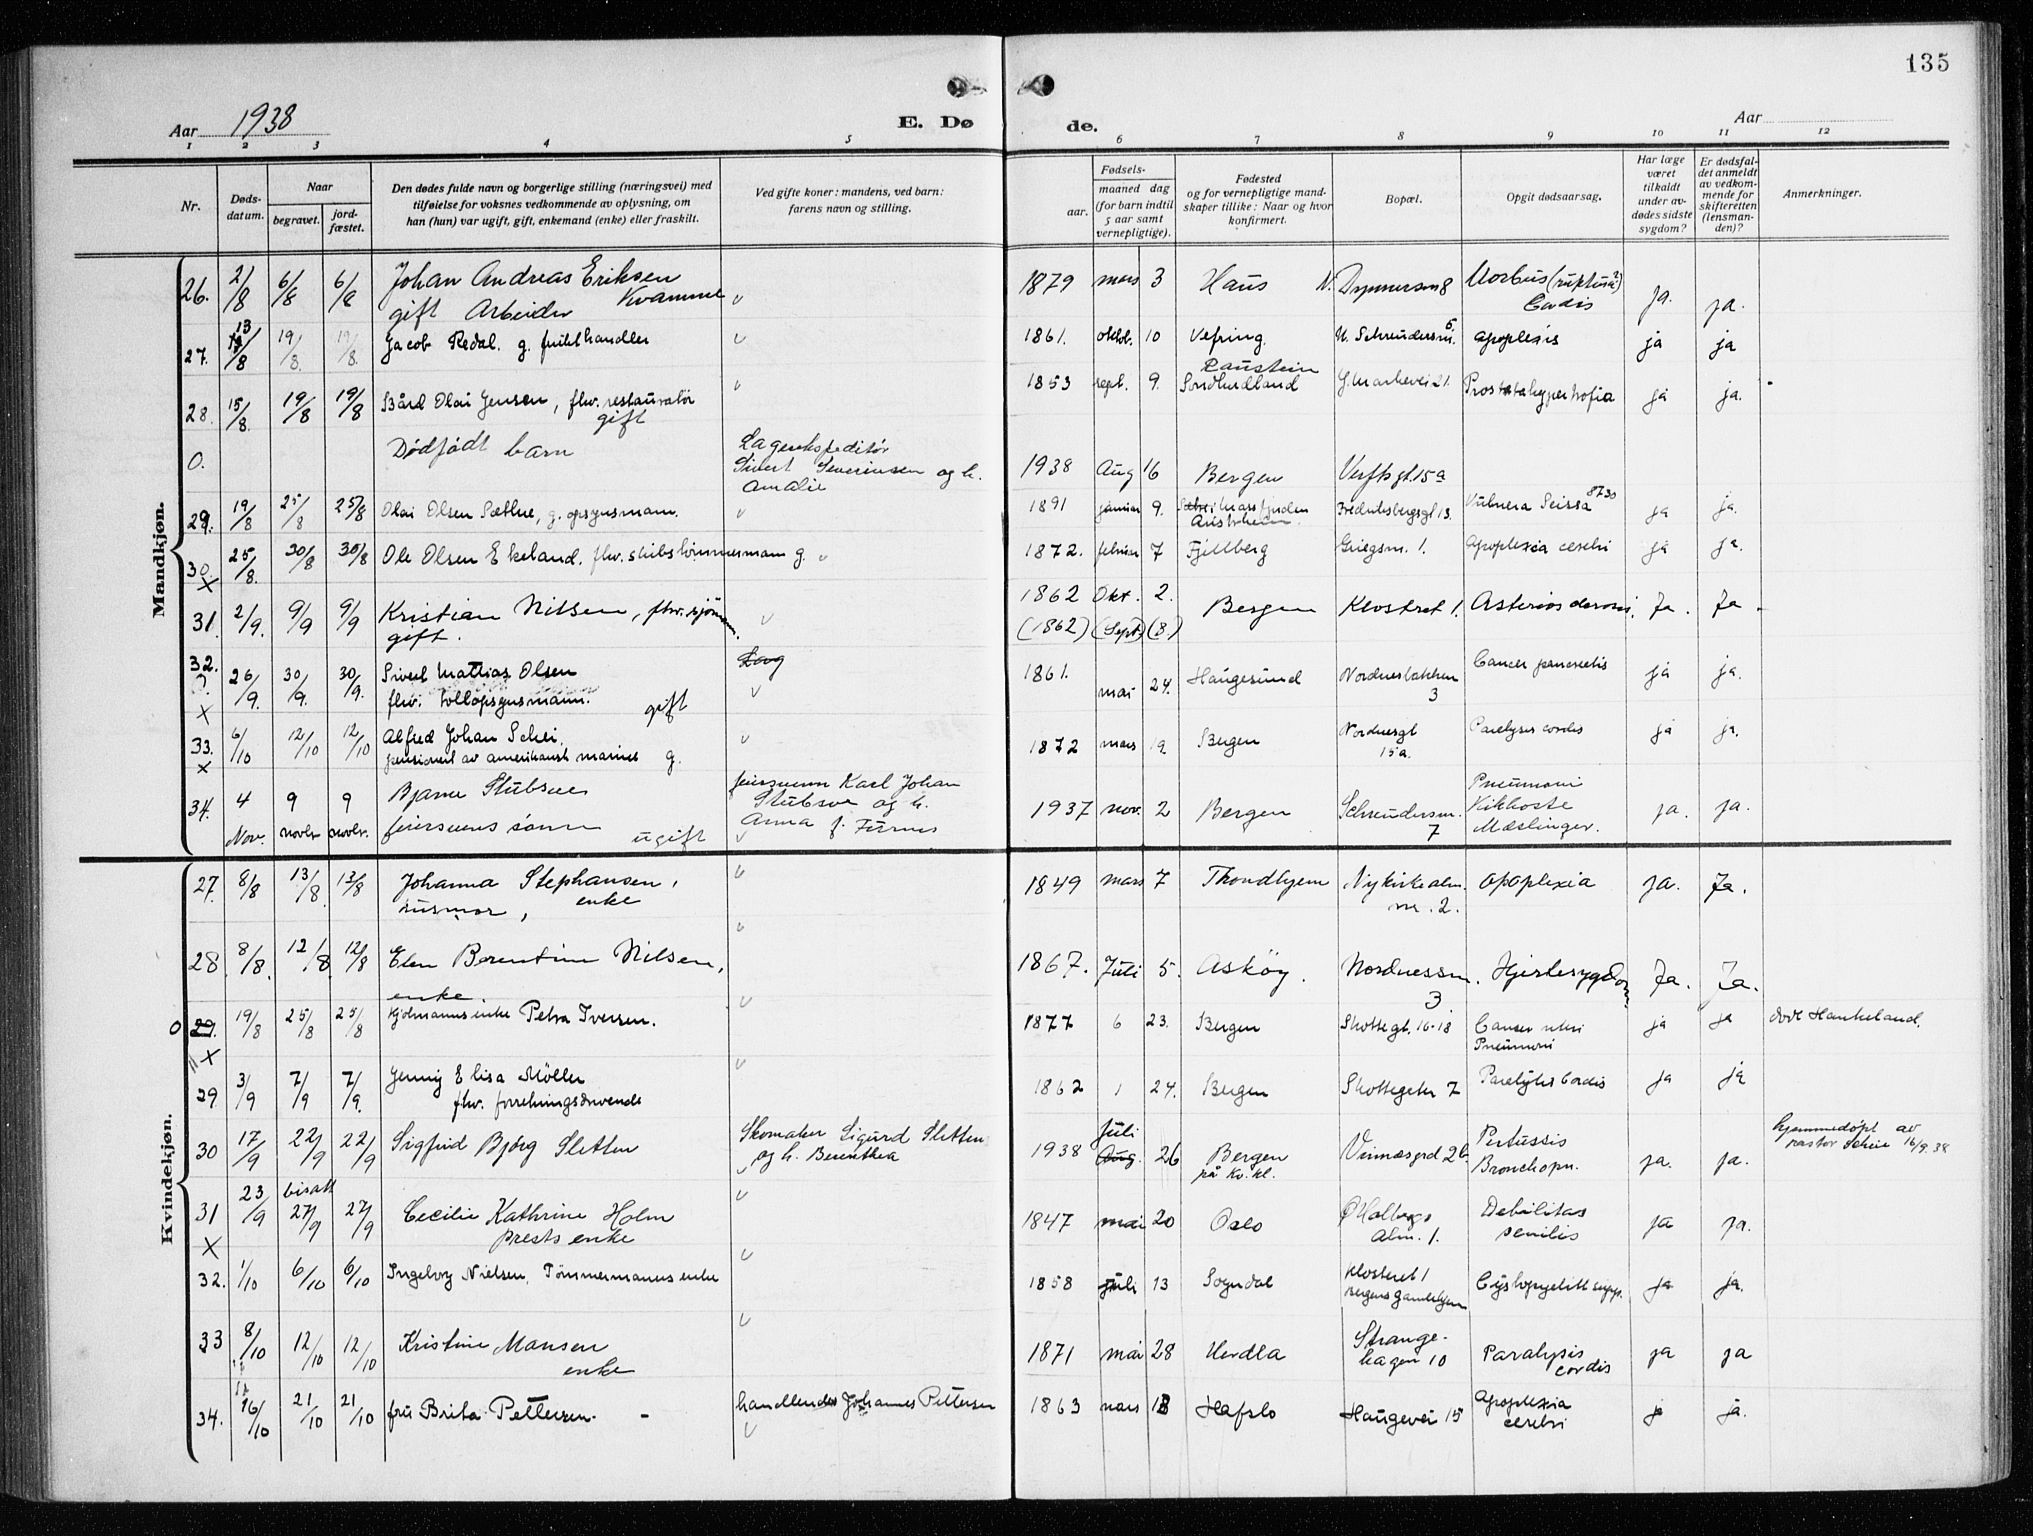 135
Aar 1938
E. Dø
de.
Aar
1 2 3 4 5 6 7 8 9 10 11 12
Nr.
Døds-
datum.
Naar
begravet.
jord-
fæstet.
Den dødes fulde navn og borgerlige stilling (næringsvei) med
tilføielse for voksnes vedkommende av oplysning, om
han (hun) var ugift, gift, enkemand (enke) eller fraskilt.
Ved gifte koner: mandens, ved barn:
farens navn og stilling.
Fødsels-
aar.
maaned dag
(for barn indtil
5 aar samt
vernepligtige).
Fødested
og for vernepligtige mand-
skaper tillike: Naar og hvor
konfirmert.
Bopæl.
Opgit dødsaarsag.
Har læge
været
tilkaldt
under av-
dødes sidste
sygdom?
Er dødsfal-
det anmeldt
av vedkom-
mende for
skifteretten
(lensman-
den)?
Anmerkninger.
Mandkjøn.
26. 2/8 6/8 6/8 Johan Andreas Eriksen Kvamme gift Arbeider 1879 mars 3 Haus Morbus (ruktura?) Cordis ja. ja.
27. 13/8 19/8 19/8 Jacob Redal. g. 1861. oktbr. 10 Vefring N. Schreudersm. 5 apoplexis ja ja
28. 15/8 19/8 19/8 Bård Olai Jensen, fhv. restauratør gift 1853 sept. 9. Søndhordland S. Markevei 21. Prostatahypertrofia ja ja.
0. Dødfødt barn Lagerekspeditør Sivert Severinsen og h. Amalie 1938 Aug 16 Bergen Verftsgt. 15a
29. 19/8 25/8 25/8 Olai Olsen Sæthre, g. opsynsmann. 1891 januar 9. Masfjorden Austrheim. Fredriksbergsgt 13. Vulnera Scissa 8730 ja ja.
30. x 25/8. 30/8 30/8 Ole Olsen Ekeland. fhv. skibstømmermann g. 1872. februar 7 Fjellberg Griegsm. 1. Apoplexia cerebri ja ja.
31. 2/9. 9/9 9/9 Kristian Nilsen, fhv. sjömann. gift. 1862 Okt. 2. (1862) (Sept) (8.) Bergen Klostret 1. Asteriosderosis. Ja. Ja.
32. x 26/9. 30/9. 30/9. Sivert Mattias Olsen fhv. tollopsynsmann. gift 1861. mai 24. Haugesund Nordnesbakken 3 Cancer pancreatis ja ja.
33. x 6/10 12/10 12/10 Alfred Johan Schei. pensionert av amerikansk marine g. 1872 mars 19. Bergen Nordnesgt 15a. Paralysis cordis ja ja.
34. 4 Nov. 9 novbr 9 novbr. Bjarne Stubsøe feiersvens sønn ugift feiersvenn Karl Johan Stubsoe og h. Anna f. Furnes 1937 nov. 2 Bergen Schreudersm. 7 Pneumoni Kikhoste Mæslinger. ja. ja.
Kvindekjøn.
27. 8/8 13/8. 13/8 Johanna Stephansen, husmor, enke 1849 mars 7 Thondhjem Nykirkealm. nr. 2. apoplexia ja. Ja.
28. 8/8. 12/8. 12/8 Elen Berentine Nilsen, enke. 1867. Juli 5. Asköy. Nordnessm. 3 Hjertesygdom Ja. Ja.
0 29. x 19/8 25/8 25/8 Petra Iversen. 1877 6 23. Bergen Skottegt. 16-18 Cancer uteri Pneumoni ja ja døde Haukeland.
29 3/9 7/9 7/9. Jenny Elisa Möller fhv. forretningsdrivende 1862 1 24. Bergen Skottegaten 7 Paralysis Cordis ja ja
30 17/9 22/9 22/9 Sigfrid Bjørg Sletten Skomaker Sigurd Sletten og h. Berenthea 1938 Juli Aug. 26 Bergen på Kv. kl. Pertussis Bronchopn. ja. ja. hjemmedøpt av pastor Scheie 16/9. 38
31 x 23/9 bisatt 27/9 27/9 Cecilie Kathrine Holm prests enke 1847 mai 20 Oslo Holbergs Alm. 1. Debilitas senilis ja ja.
32. 1/10 6/10 6/10 Ingeborg Nielsen, Tømmermanns enke 1858 juli 13 Sogndal Klosteret 1 Bergens Gamlehjem Cystopyelitt supp. ja ja.
33 8/10 12/10 12/10 Kristine Monsen enke 1871 mai 28 Herdla Strange- hagen 10 Paralysis cordis ja ja
34. 16/10 21/10 21/10 fru Brita Pettersen. - handlende Johannes Pettersen 1863 mars 18 Hafslo Haugevei 15 Apoplexia cerebri ja ja.